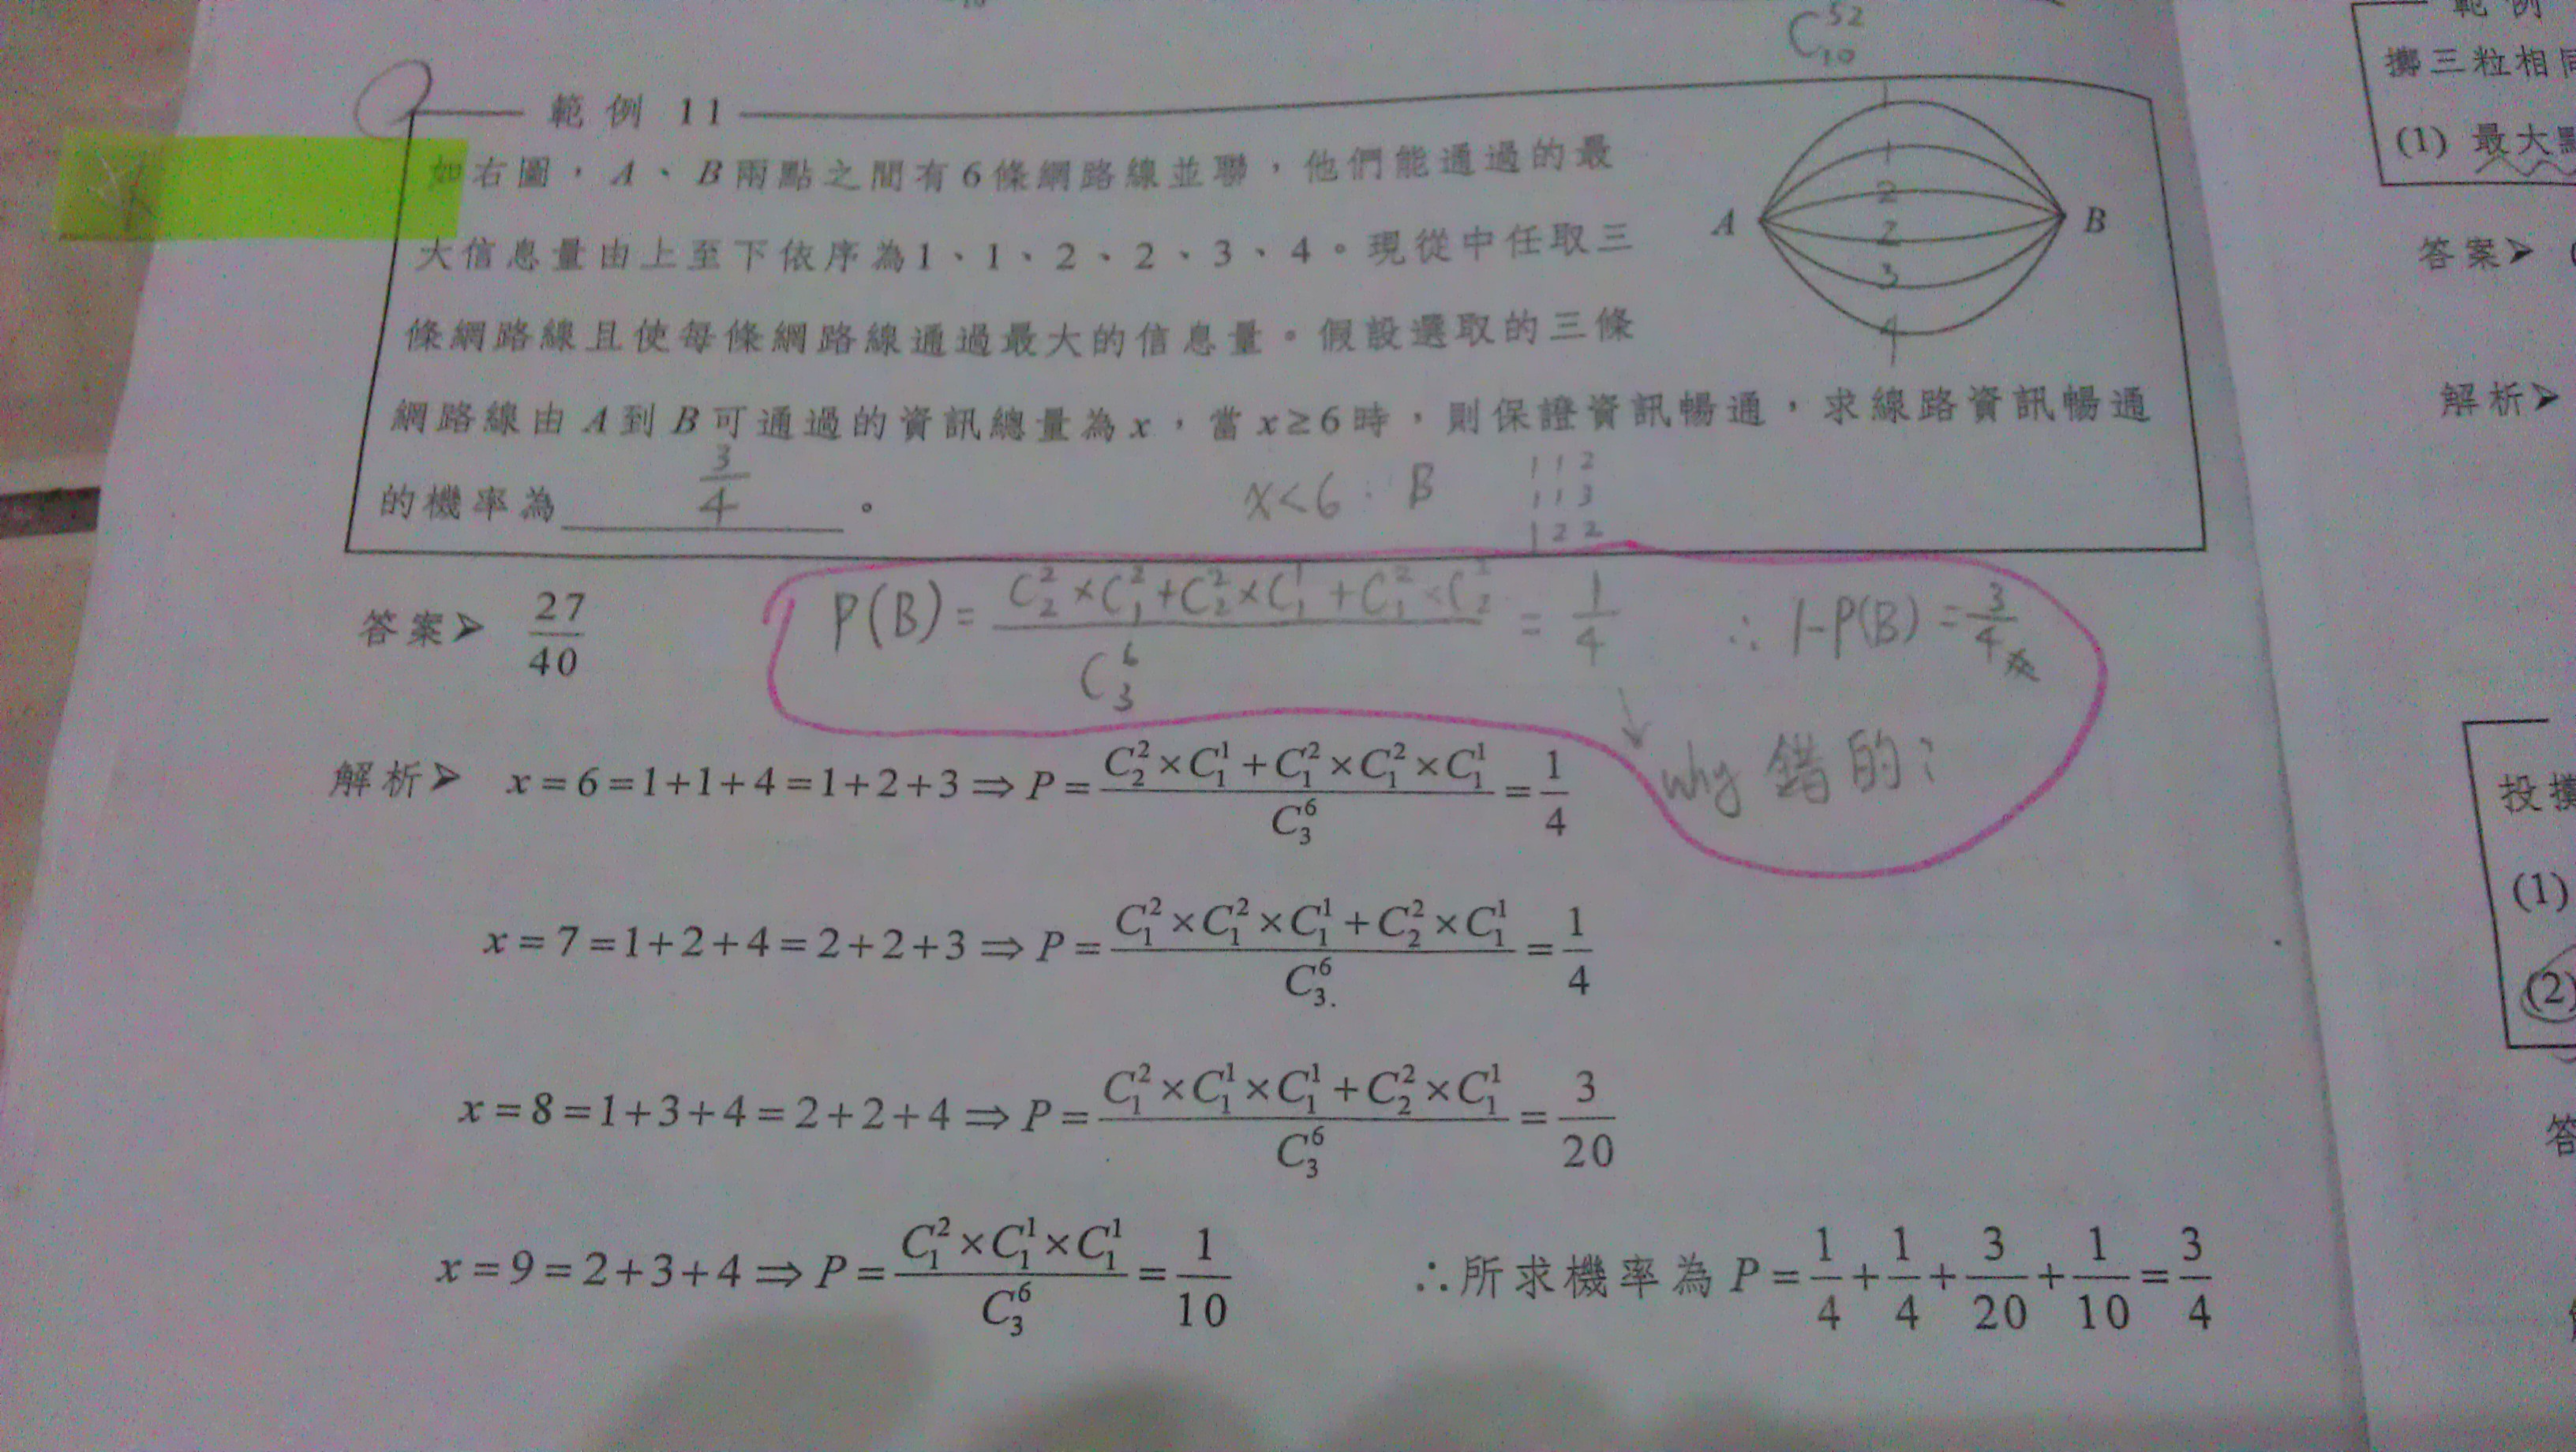 C₁₀⁵²
範例 11
如右圖，A、B兩點之間有6條網路線並聯，他們能通過的最
大信息量由上至下依序為1、1、2、2、3、4。現從中任取三
條網路線且使每條網路線通過最大的信息量。假設選取的三條
網路線由A到B可通過的資訊總量為x，當x≥6時，則保證資訊暢通，求線路資訊暢通
的機率為 3/4 。
A
1
1
2
2
3
4
B
x<6 : B
1 1 2
1 1 3
1 2 2
答案➤ 27/40
P(B) = (C₂²×C₁²+C₂²×C₁¹+C₁²×C₂²)/C₃⁶ = 1/4 ∴ 1-P(B) = 3/4
↓
why 錯的?
解析➤ x=6=1+1+4=1+2+3⇒P=(C₂²×C₁¹+C₁²×C₁²×C₁¹)/C₃⁶=1/4
x=7=1+2+4=2+2+3⇒P=(C₁²×C₁²×C₁¹+C₂²×C₁¹)/C₃⁶=1/4
x=8=1+3+4=2+2+4⇒P=(C₁²×C₁¹×C₁¹+C₂²×C₁¹)/C₃⁶=3/20
x=9=2+3+4⇒P=(C₁²×C₁¹×C₁¹)/C₃⁶=1/10
∴所求機率為P=1/4+1/4+3/20+1/10=3/4
範例
擲三粒相同
(1) 最大
答案➤ (
解析➤
投擲
(1)
(2)
答